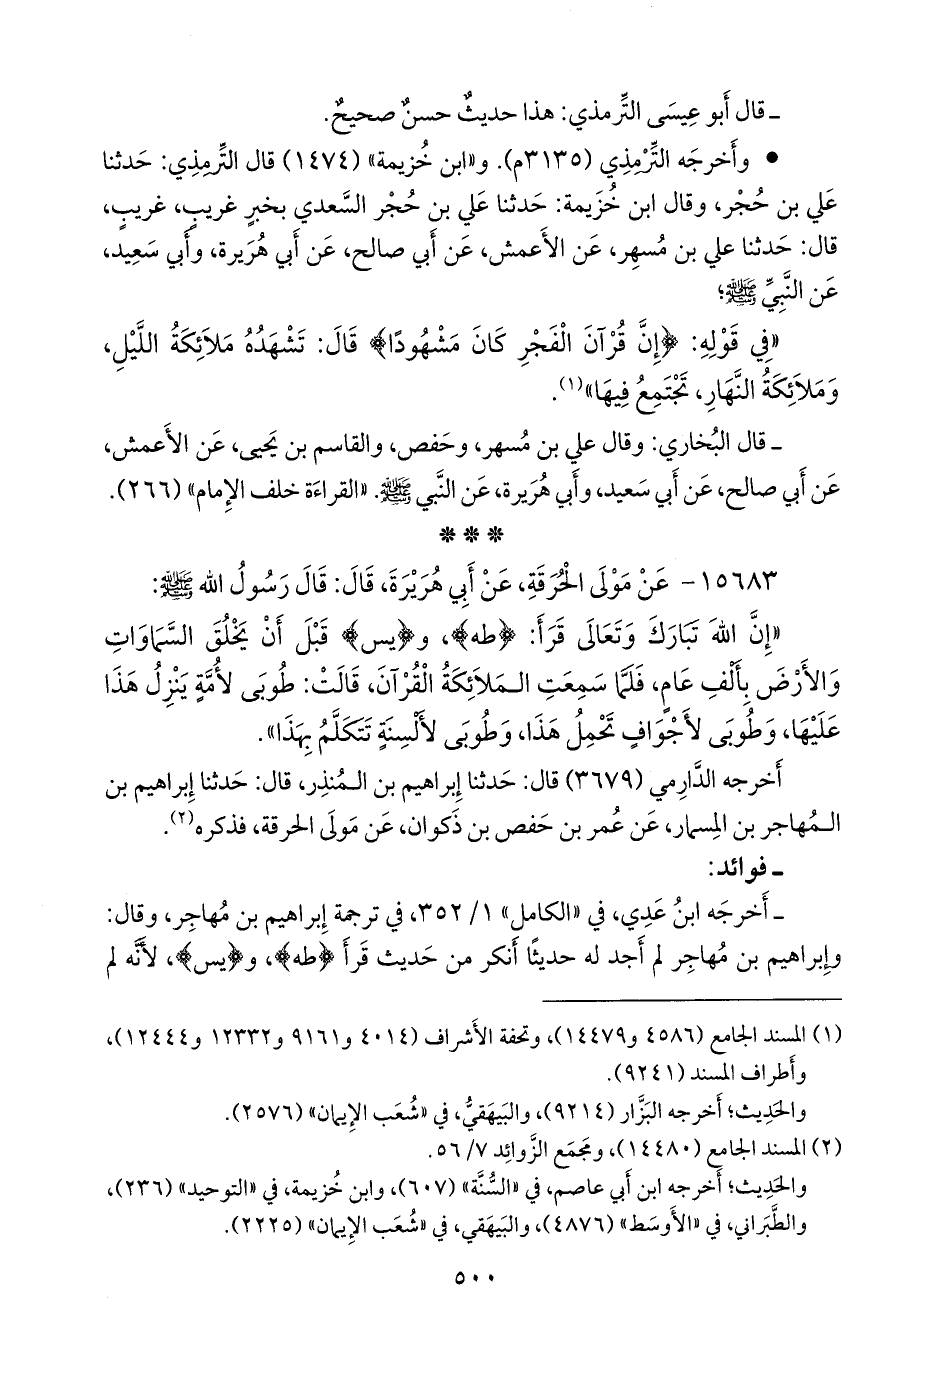 ـ قال أَبو عِيسَى التِّرمذي: هذا حديثٌ حسنٌ صحيحٌ.
• وأَخرجَه التِّرْمِذي (٣١٣٥م). و«ابن خُزيمة» (١٤٧٤) قال التِّرمِذي: حَدثنا
عَلي بن حُجْر، وقال ابن خُزَيمة: حَدثنا عَلي بن حُجْر السَّعدي بخبرٍ غريبٍ، غريبٍ،
قال: حَدثنا علي بن مُسهِر، عَن الأَعمش، عَن أَبي صالح، عَن أَبي هُرَيرة، وأَبي سَعِيد،
عَن النَّبيِّ ﷺ؛
«فِي قَوْلِهِ: ﴿إِنَّ قُرْآنَ الْفَجْرِ كَانَ مَشْهُودًا﴾ قَالَ: تَشْهَدُهُ مَلاَئِكَةُ اللَّيْلِ،
وَمَلاَئِكَةُ النَّهَارِ، تَجْتَمِعُ فِيهَا»(١).
ـ قال البُخاري: وقال علي بن مُسهر، وحَفص، والقاسم بن يَحيى، عَن الأَعمش،
عَن أَبي صالح، عَن أَبي سَعيد، وأَبي هُرَيرة، عَن النَّبي ﷺ. «القراءَة خلف الإِمام» (٢٦٦).
* * *
١٥٦٨٣ - عَنْ مَوْلَى الْحُرَقَةِ، عَنْ أَبِي هُرَيْرَةَ، قَالَ: قَالَ رَسُولُ الله ﷺ:
«إِنَّ اللهَ تَبَارَكَ وَتَعَالَى قَرَأَ: ﴿طه﴾، و﴿يس﴾ قَبْلَ أَنْ يَخْلُقَ السَّمَاوَاتِ
وَالأَرْضَ بِأَلْفِ عَامٍ، فَلَمَّا سَمِعَتِ الـمَلاَئِكَةُ الْقُرْآنَ، قَالَتْ: طُوبَى لأُمَّةٍ يَنْزِلُ هَذَا
عَلَيْهَا، وَطُوبَى لأَجْوَافٍ تَحْمِلُ هَذَا، وَطُوبَى لأَلْسِنَةٍ تَتَكَلَّمُ بِهَذَا».
أَخرجه الدَّارِمي (٣٦٧٩) قال: حَدثنا إِبراهيم بن الـمُنذِر، قال: حَدثنا إِبراهيم بن
الـمُهاجر بن المِسمار، عَن عُمر بن حَفص بن ذَكوان، عَن مَولَى الحرقة، فذكره(٢).
ـ فوائد:
ـ أَخرجَه ابنُ عَدِي، في «الكامل» ١/ ٣٥٢، في ترجمة إِبراهيم بن مُهاجر، وقال:
وإِبراهيم بن مُهاجِر لم أَجد له حديثًا أَنكر من حَديث قَرأَ ﴿طه﴾، و﴿يس﴾، لأَنَّه لم
(١) المسند الجامع (٤٥٨٦ و١٤٤٧٩)، وتحفة الأَشراف (٤٠١٤ و٩١٦١ و١٢٣٣٢ و١٢٤٤٤)،
وأَطراف المسند (٩٢٤١).
والحَدِيث؛ أَخرجه البَزَّار (٩٢١٤)، والبَيهَقيُّ، في «شُعَب الإِيمان» (٢٥٧٦).
(٢) المسند الجامع (١٤٤٨٠)، ومَجمَع الزَّوائِد ٧/ ٥٦.
والحَدِيث؛ أَخرجه ابن أَبي عاصم، في «السُّنَّة» (٦٠٧)، وابن خُزيمة، في «التوحيد» (٢٣٦)،
والطَّبَراني، في «الأَوسَط» (٤٨٧٦)، والبَيهَقي، في «شُعَب الإِيمان» (٢٢٢٥).
٥٠٠